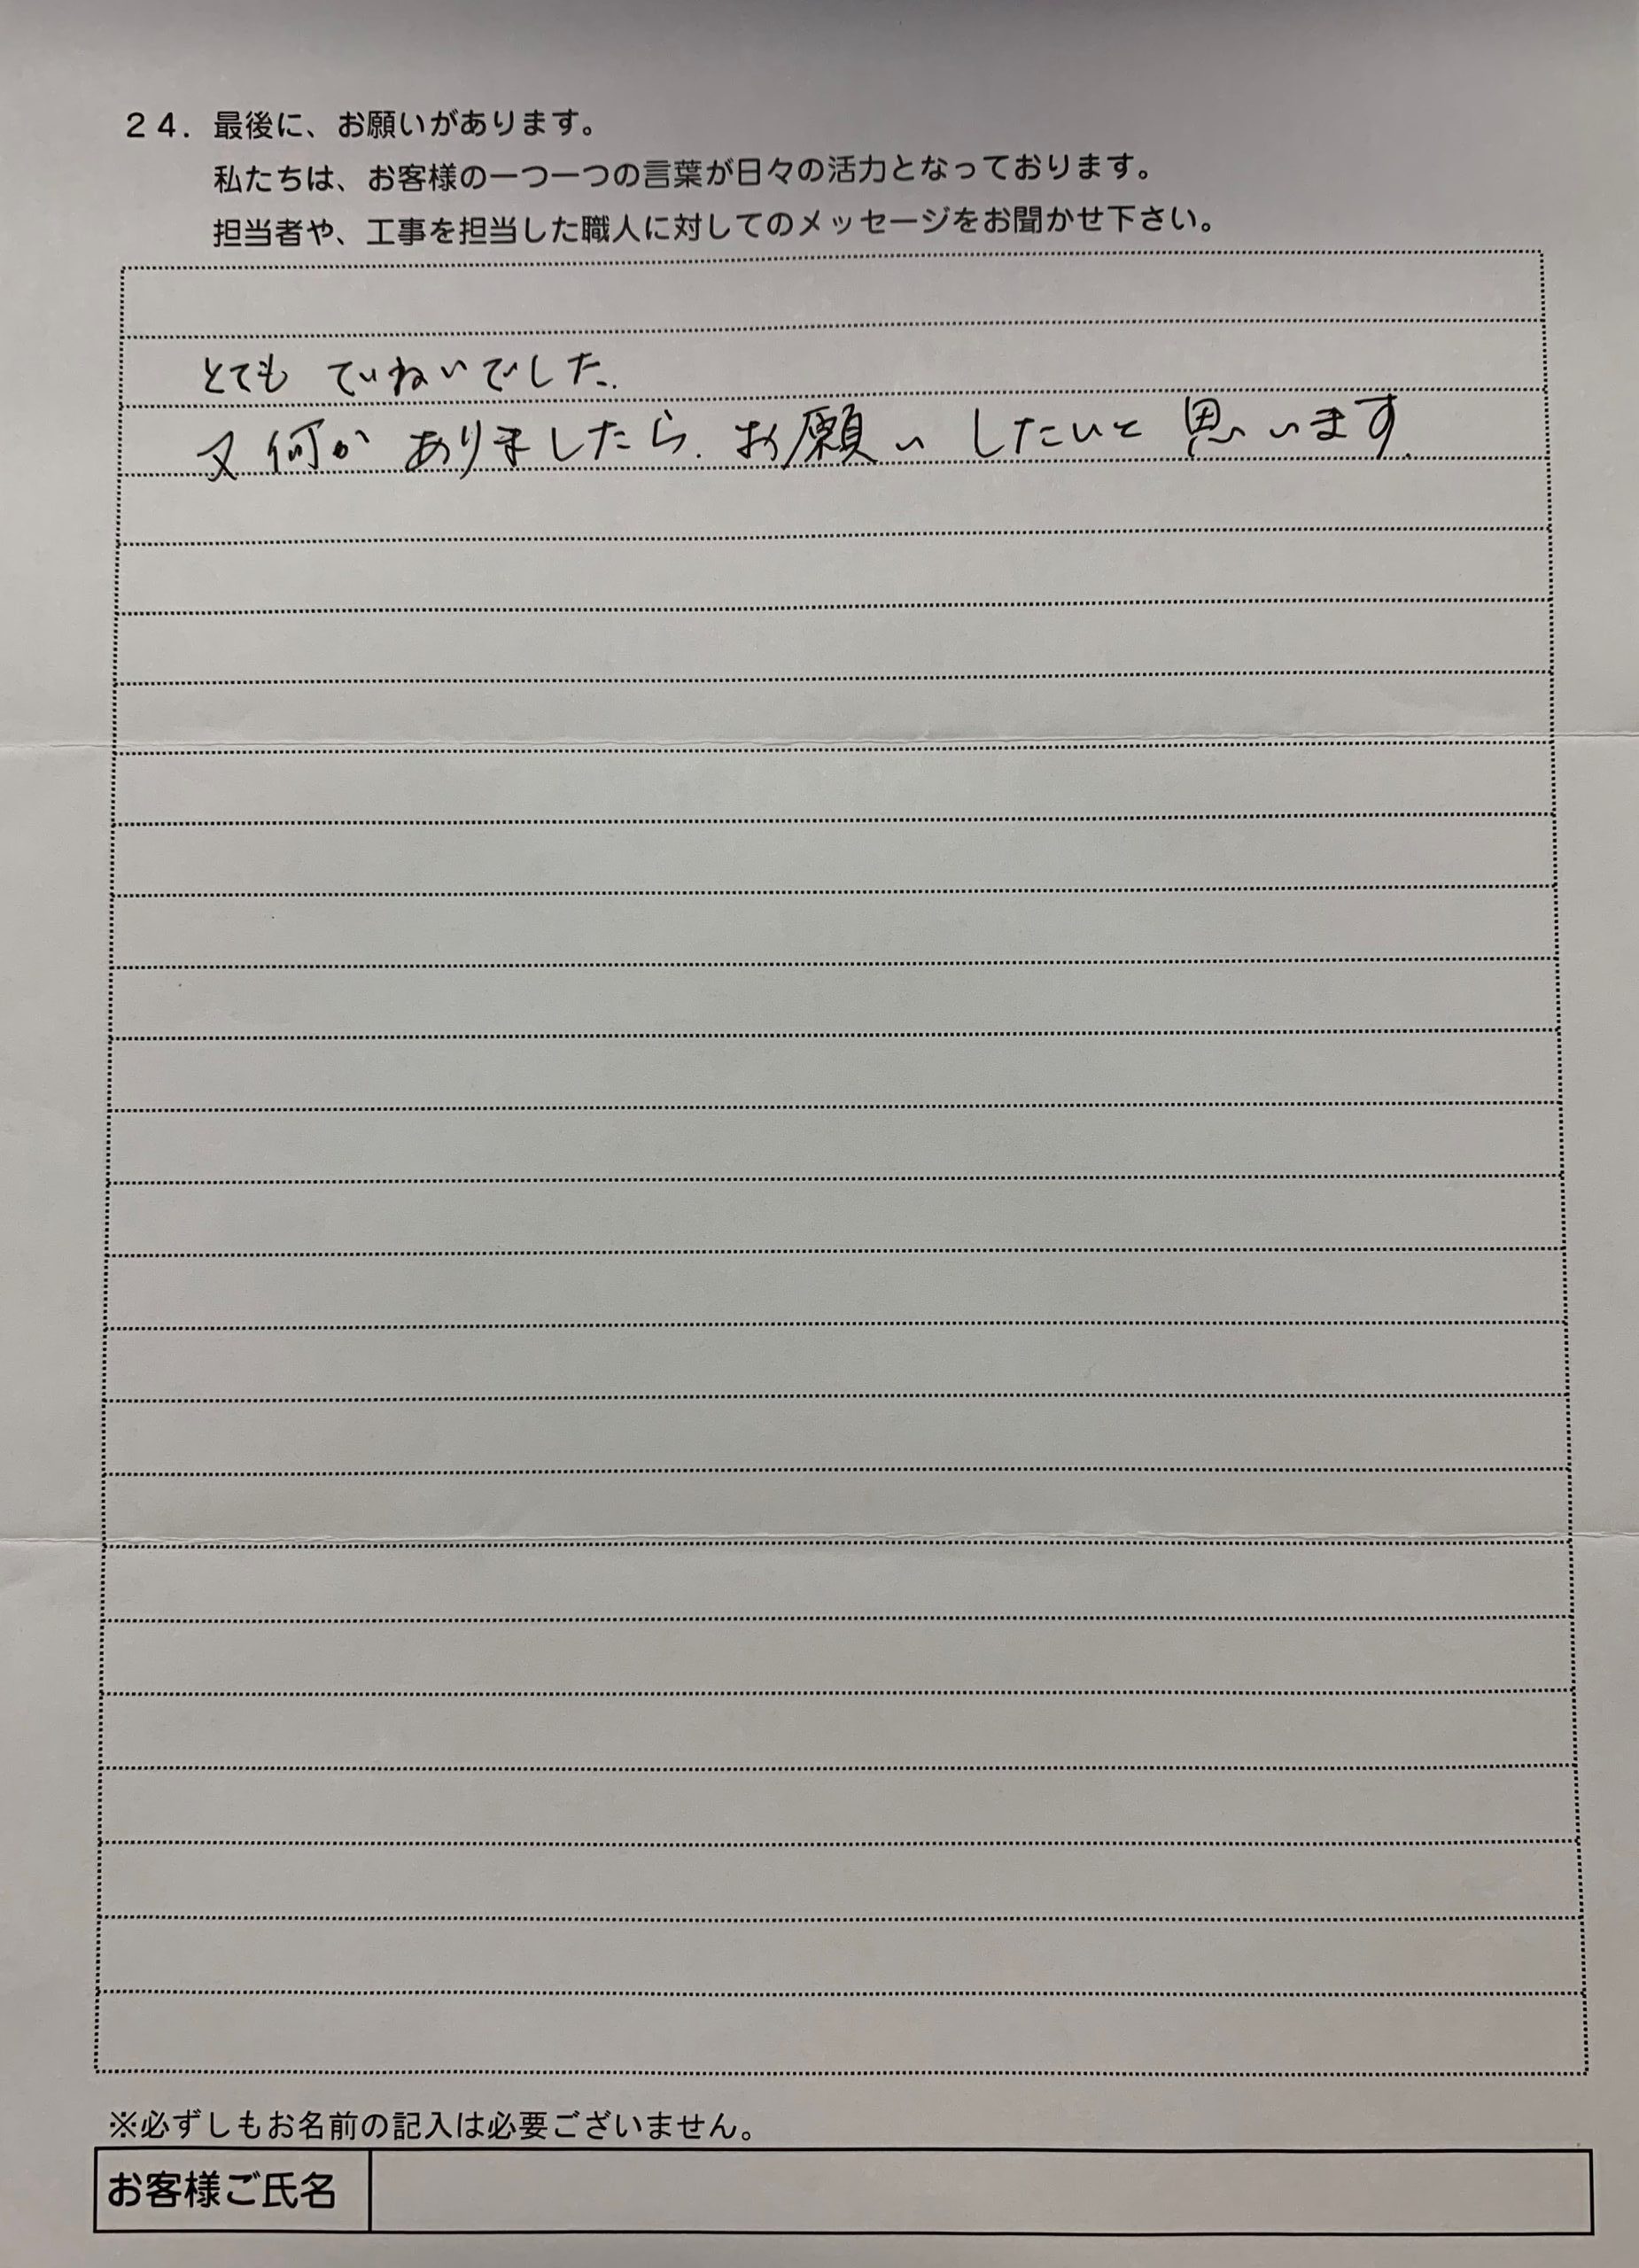 24. 最後に、お願いがあります。
私たちは、お客様の一つ一つの言葉が日々の活力となっております。
担当者や、工事を担当した職人に対してのメッセージをお聞かせ下さい。
とても ていねいでした.
又何か ありましたら. お願い したいと 思います.
※必ずしもお名前の記入は必要ございません。
お客様ご氏名